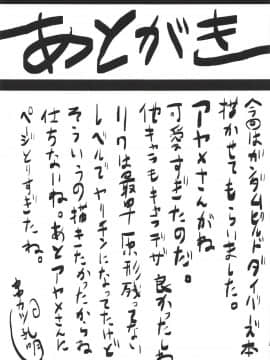 あとがき
今回はガンダムビルドダイバーズ本
描かせてもらいました。
アヤメさんが
可愛すぎたのだ。
他キャラもキャラデザ良かったしね
リクは最早原形残ってない
レベルでヤリチンになってたけど
そういうの描きたかったからね
仕方ないね。あとアヤメさんに
ページとりすぎたね。